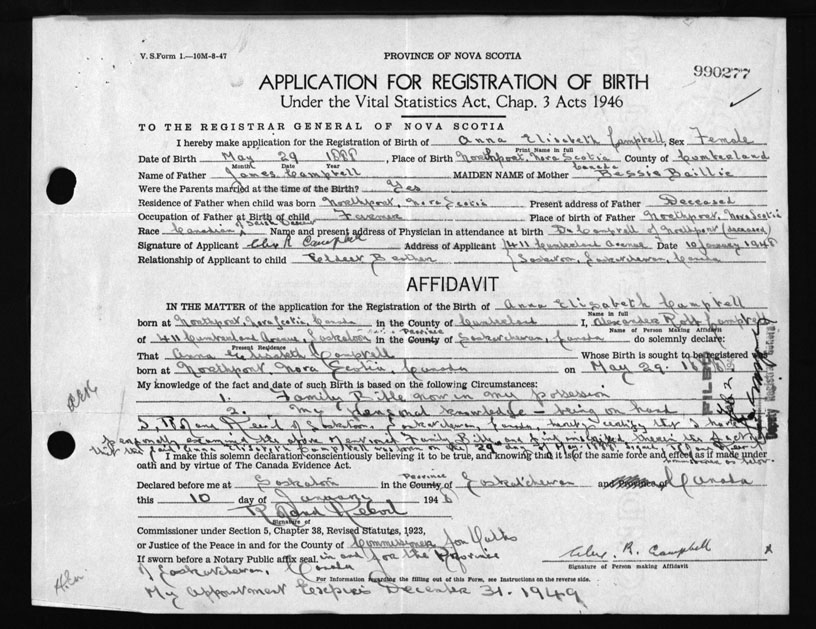 V. S. Form 1.—10M-8-47
PROVINCE OF NOVA SCOTIA
990277
APPLICATION FOR REGISTRATION OF BIRTH
Under the Vital Statistics Act, Chap. 3 Acts 1946
TO THE REGISTRAR GENERAL OF NOVA SCOTIA
I hereby make application for the Registration of Birth of Anna Elisabeth Campbell, Sex Female
Print Name in full
Date of Birth May 29 1888, Place of Birth Northport, Nova Scotia County of Cumberland
Month Date Year Canada
Name of Father James Campbell MAIDEN NAME of Mother Bessie Baillie
Were the Parents married at the time of the Birth? Yes
Residence of Father when child was born Northport, Nova Scotia Present address of Father Deceased
Occupation of Father at Birth of child Farmer Place of birth of Father Northport, Nova Scotia
Race Canadian of Scotch Name and present address of Physician in attendance at birth Dr Campbell of Northport (deceased)
Signature of Applicant Alex R. Campbell Address of Applicant 411 Cumberland Avenue Date 10 January 1948
Relationship of Applicant to child Eldest Brother Saskatoon, Saskatchewan, Canada
AFFIDAVIT
IN THE MATTER of the application for the Registration of the Birth of Anna Elisabeth Campbell
Name in full
born at Northport, Nova Scotia, Canada in the County of Cumberland I, Alexander Ross Campbell
Name of Person Making Affidavit
of 411 Cumberland Avenue, Saskatoon in the County of Province Saskatchewan, Canada do solemnly declare:
Present Residence
That Anna Elisabeth Campbell Whose Birth is sought to be registered was
born at Northport, Nova Scotia, Canada on May 29. 1888
My knowledge of the fact and date of such Birth is based on the following Circumstances:
1. Family Bible now in my possession
2. My personal knowledge – being on hand
of Saskatoon, Saskatchewan, Canada, hereby certify that I have
personally examined the above mentioned Family Bible and find inscribed therein the fact
that the said Anna Elisabeth Campbell was born on the 29 day of May 1888
I make this solemn declaration conscientiously believing it to be true, and knowing that it is of the same force and effect as if made under
oath and by virtue of The Canada Evidence Act.
Declared before me at Saskatoon in the County of Province Saskatchewan and Canada
this 10 day of January 1948
Signature of
Commissioner under Section 5, Chapter 38, Revised Statutes, 1923,
or Justice of the Peace in and for the County of Commissioner for Oaths
If sworn before a Notary Public affix seal. in and for the Province
of Saskatchewan, Canada
Alex. R. Campbell
Signature of Person making Affidavit
For Information regarding the filling out of this Form, see Instructions on the reverse side.
My Appointment Expires December 31. 1949
FILED
Deputy Registrar General